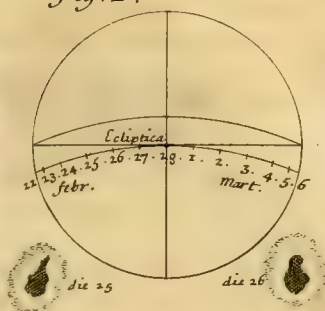 Fig. 2.
Ecliptica
22 23. 24. 25. 26. 27. 28. 1. 2. 3. 4. 5. 6
febr. Mart.
die 25 die 26